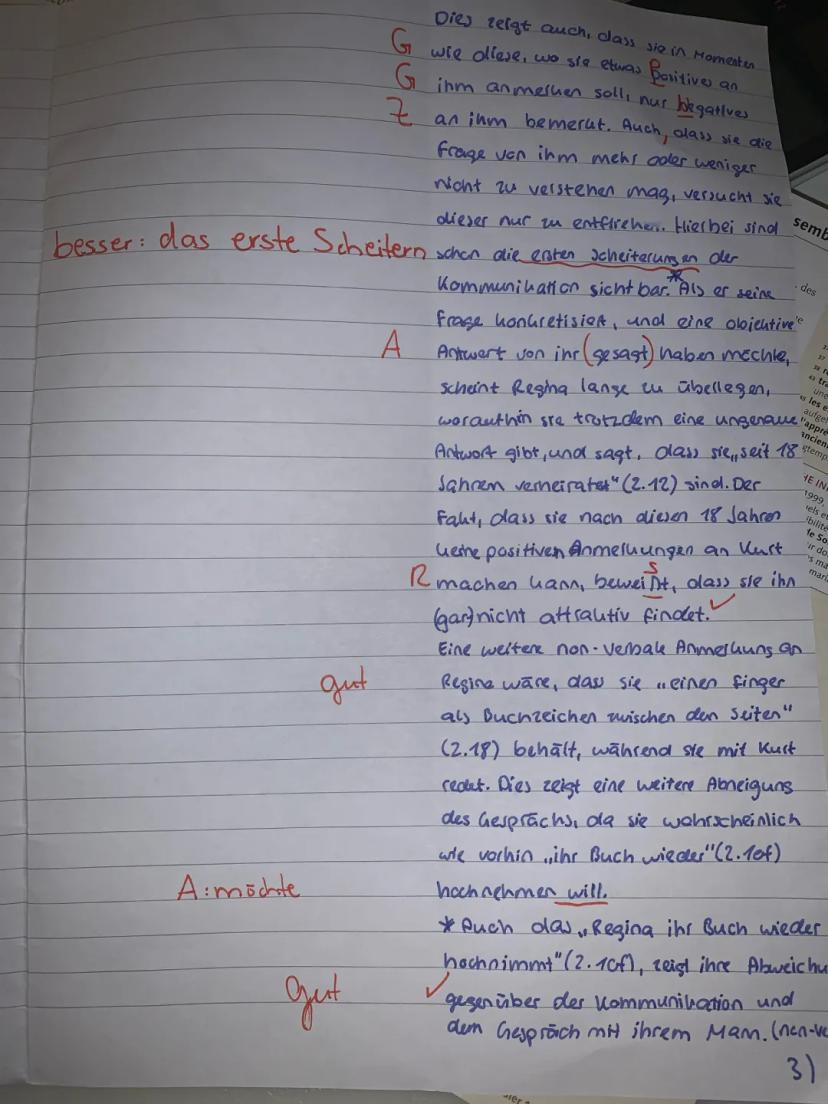 Dies zeigt auch, dass sie in Momenten
G wie diese, wo sie etwas Positives an
G ihm anmerken soll, nur Negatives
Z an ihm bemerkt. Auch, dass sie die
Frage von ihm mehr oder weniger
nicht zu verstehen mag, versucht sie
dieser nur zu entfliehen. Hierbei sind
besser: das erste Scheitern schon die ersten Scheiterungen der
Kommunikation sichtbar.* Als er seine
Frage konkretisiert, und eine objektive
A Antwort von ihr (gesagt) haben möchte,
scheint Regina lange zu überlegen,
woraufhin sie trotzdem eine ungenaue
Antwort gibt, und sagt, dass sie „seit 18
Jahren verheiratet" (Z.12) sind. Der
Fakt, dass sie nach diesen 18 Jahren
keine positiven Anmerkungen an Kurt
R machen kann, beweißt, dass sie ihn
s
(gar) nicht attraktiv findet. ✓
Eine weitere non-verbale Anmerkung an
gut Regina wäre, dass sie „einen Finger
als Buchzeichen zwischen den Seiten"
(Z.18) behält, während sie mit Kurt
redet. Dies zeigt eine weitere Abneigung
des Gesprächs, da sie wahrscheinlich
wie vorhin „ihr Buch wieder" (Z.10f)
A: möchte hochnehmen will.
* Auch das „Regina ihr Buch wieder
hochnimmt" (Z.10f), zeigt ihre
gut ✓ gegenüber der Kommunikation und
dem Gespräch mit ihrem Mann.
3)
semb
des